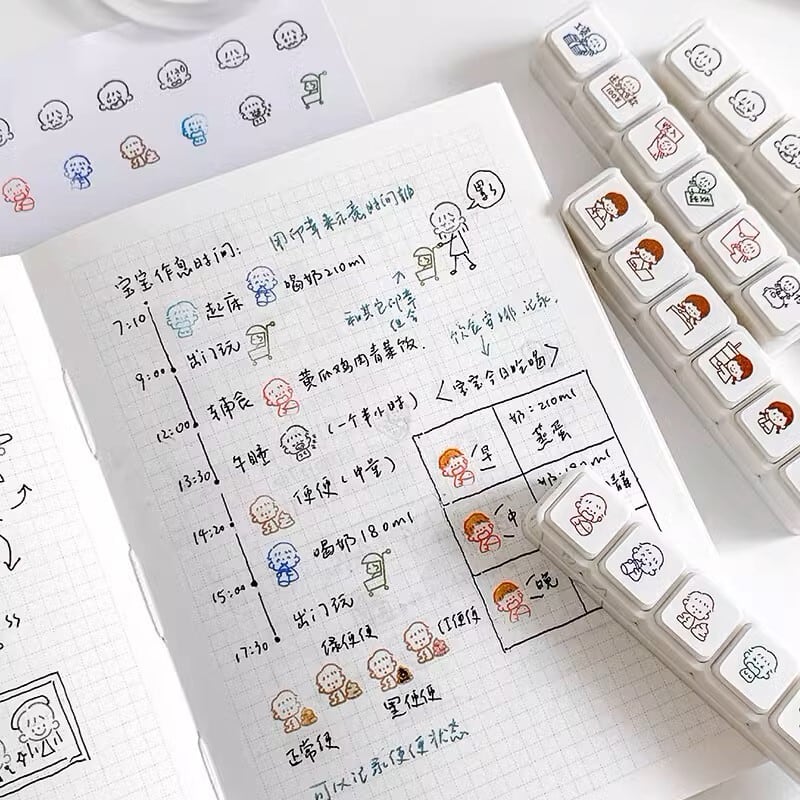 用印章来示意时间轴
累了
宝宝作息时间：
7:10 起床 喝奶210ml
和其它印章
组合
出门玩
9:00
饮食安排、记录
辅食 黄瓜鸡肉青菜饭.
12:00
<宝宝今日吃喝>
午睡 (一个半小时)
13:30
早 奶：210ml
蒸蛋
便便(中量)
14:20
中
喝奶180ml
15:00
晚
出门玩
17:30
绿便便
红便便
黑便便
正常便
可以记录便便状态